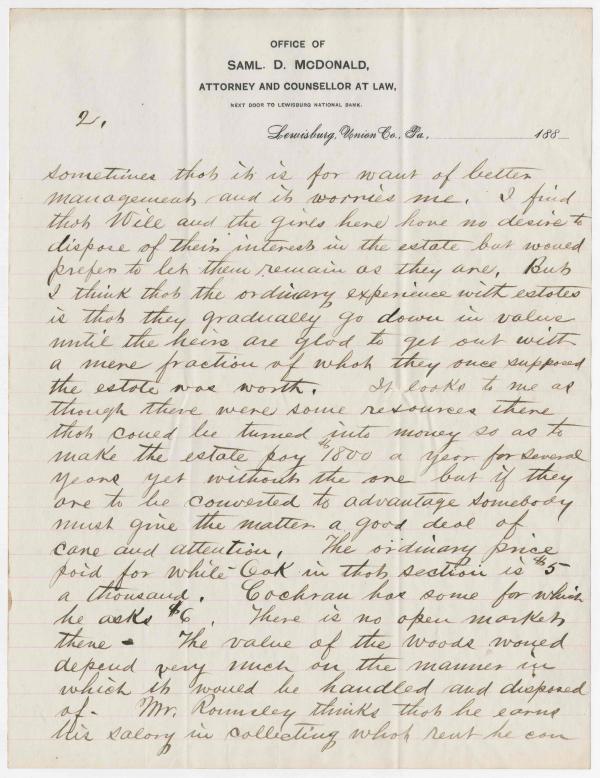 OFFICE OF
SAML. D. McDONALD,
ATTORNEY AND COUNSELLOR AT LAW,
NEXT DOOR TO LEWISBURG NATIONAL BANK.
2.
Lewisburg, Union Co., Pa. 188
sometimes that it is for want of better
management and it worries me. I find
that Will and the girls here have no desire to
dispose of their interest in the estate but would
prefer to let them remain as they are. But
I think that the ordinary experience with estates
is that they gradually go down in value
until the heirs are glad to get out with
a mere fraction of what they once supposed
the estate was worth. It looks to me as
though there were some resources there
that could be turned into money so as to
make the estate pay $1800 a year for several
years yet without the ore but if they
are to be converted to advantage somebody
must give the matter a good deal of
care and attention. The ordinary price
paid for white Oak in that section is $5
a thousand. Cochran has some for which
he asks $6. There is no open market
there - The value of the woods would
depend very much on the manner in
which it would be handled and disposed
of - Mr. thinks that he earns
his salary in collecting what rent he can